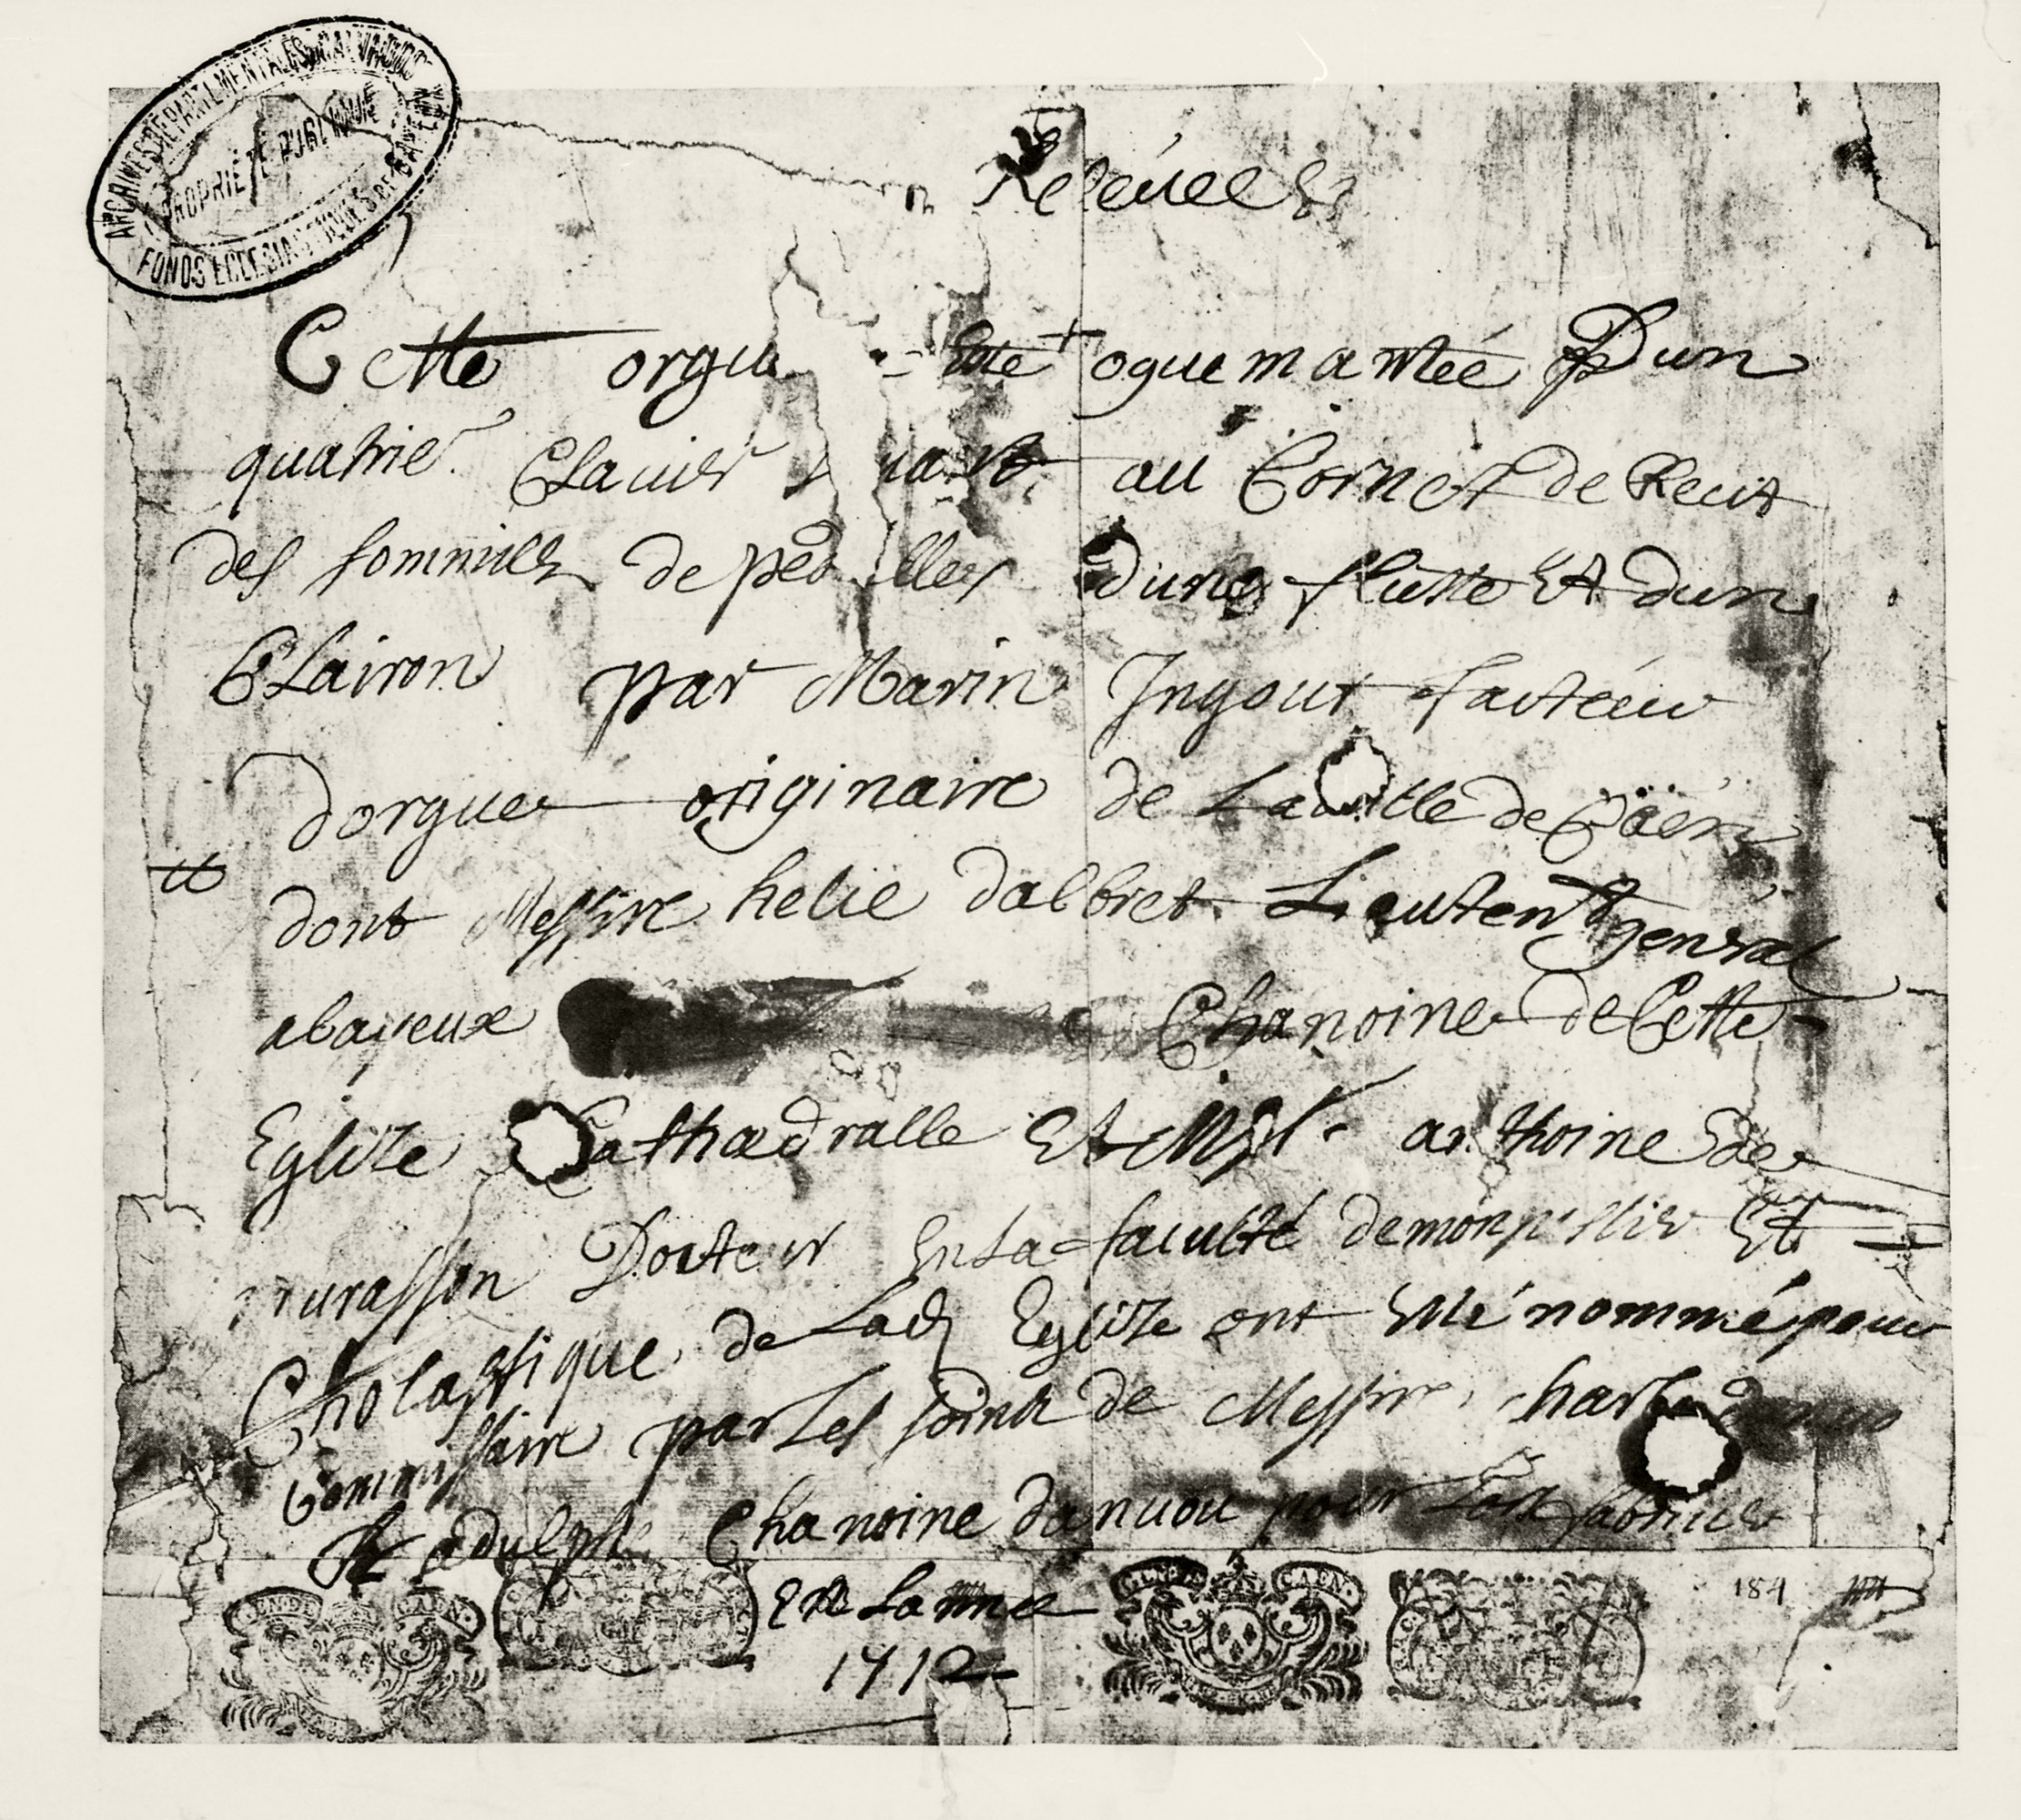 ARCHIVES DEPARTEMENTALES CALVADOS
PROPRIÉTÉ PUBLIQUE
FONDS ECCLESIASTIQUES DE BAYEUX
Relevee
Cette orgue este oguemantée Dun
quatrie. Clavier au Cornet de Recit
des sommiers de ped lles Dune fluste Et dun
Clairon par Marin Ingout facteur
dorgue originaire de La ville de Caën
it
dont Messire helie dalbret Lieutent general
abayeux Chanoine de Cette
Eglize Cathaedralle Et Mr an thoine de
urasson Docteur En La faculté de monp llier Et
Cholastique de Lad Eglize ont Esté nommé pour
Commissaire par Les soints de Messire charle
Radulph Chanoine danvou pour fabricier
GEN. DE CAEN.
En Lannee
1712
GEN. DE CAEN.
184